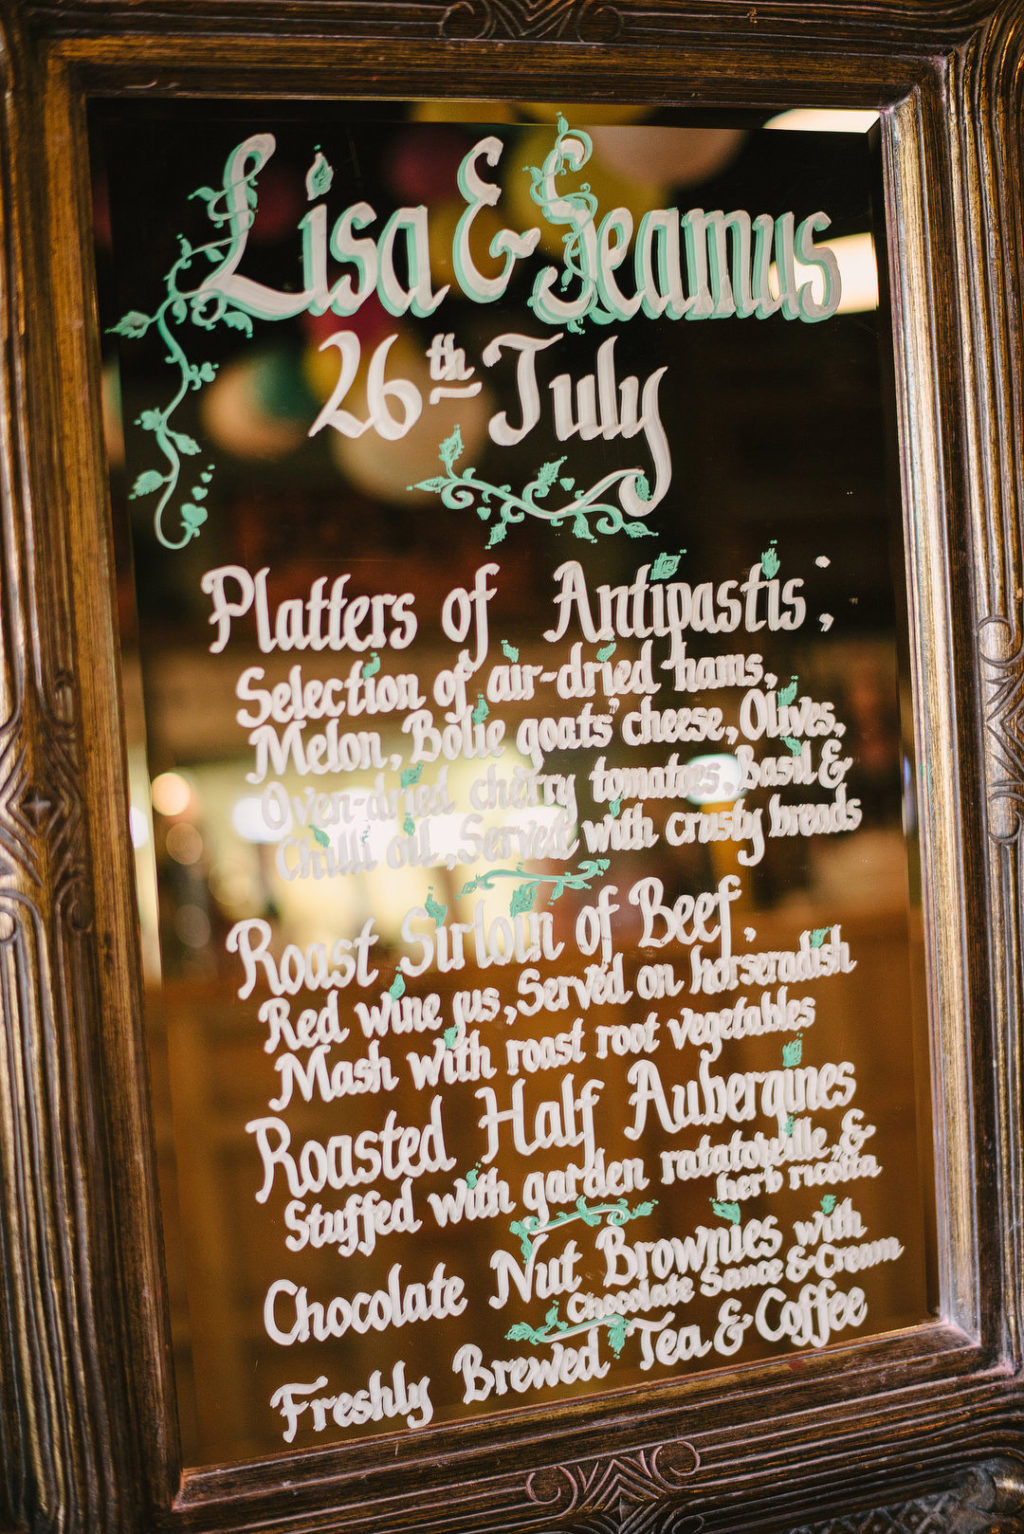 Lisa & Seamus
26th July
Platters of Antipastis;
Selection of air-dried hams,
Melon, Bolie goats' cheese, Olives,
Oven-dried cherry tomatoes, Basil &
Chilli oil, Served with crusty breads
Roast Sirloin of Beef,
Red wine jus, Served on horseradish
Mash with roast root vegetables
Roasted Half Aubergines
Stuffed with garden ratatouille &
herb ricotta
Chocolate Nut Brownies with
Chocolate Sauce & Cream
Freshly Brewed Tea & Coffee